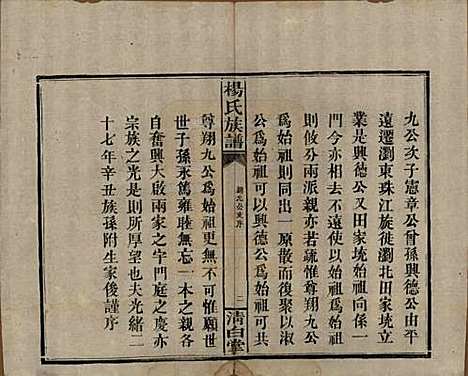 九公次子憲章公曾孫興德公由平
遠遷瀏東珠江旋徙瀏北田家塅立
業是興德公又田家塅始祖關係一
門今亦相去不遠使以始祖為始祖
則攸分兩派親亦若疏惟尊翔九公
為始祖則同出一原散而復聚以淑
公為始祖可以興德公為始祖可共
楊氏族譜
翔九公支序
二
清白堂
尊翔九公為始祖更無不可惟願世
世子孫永篤雍睦無忘一本之親各
自奮興大啟兩家之宇門庭之慶亦
宗族之光是則所厚望也夫光緒二
十七年辛丑族孫附生家俊謹序